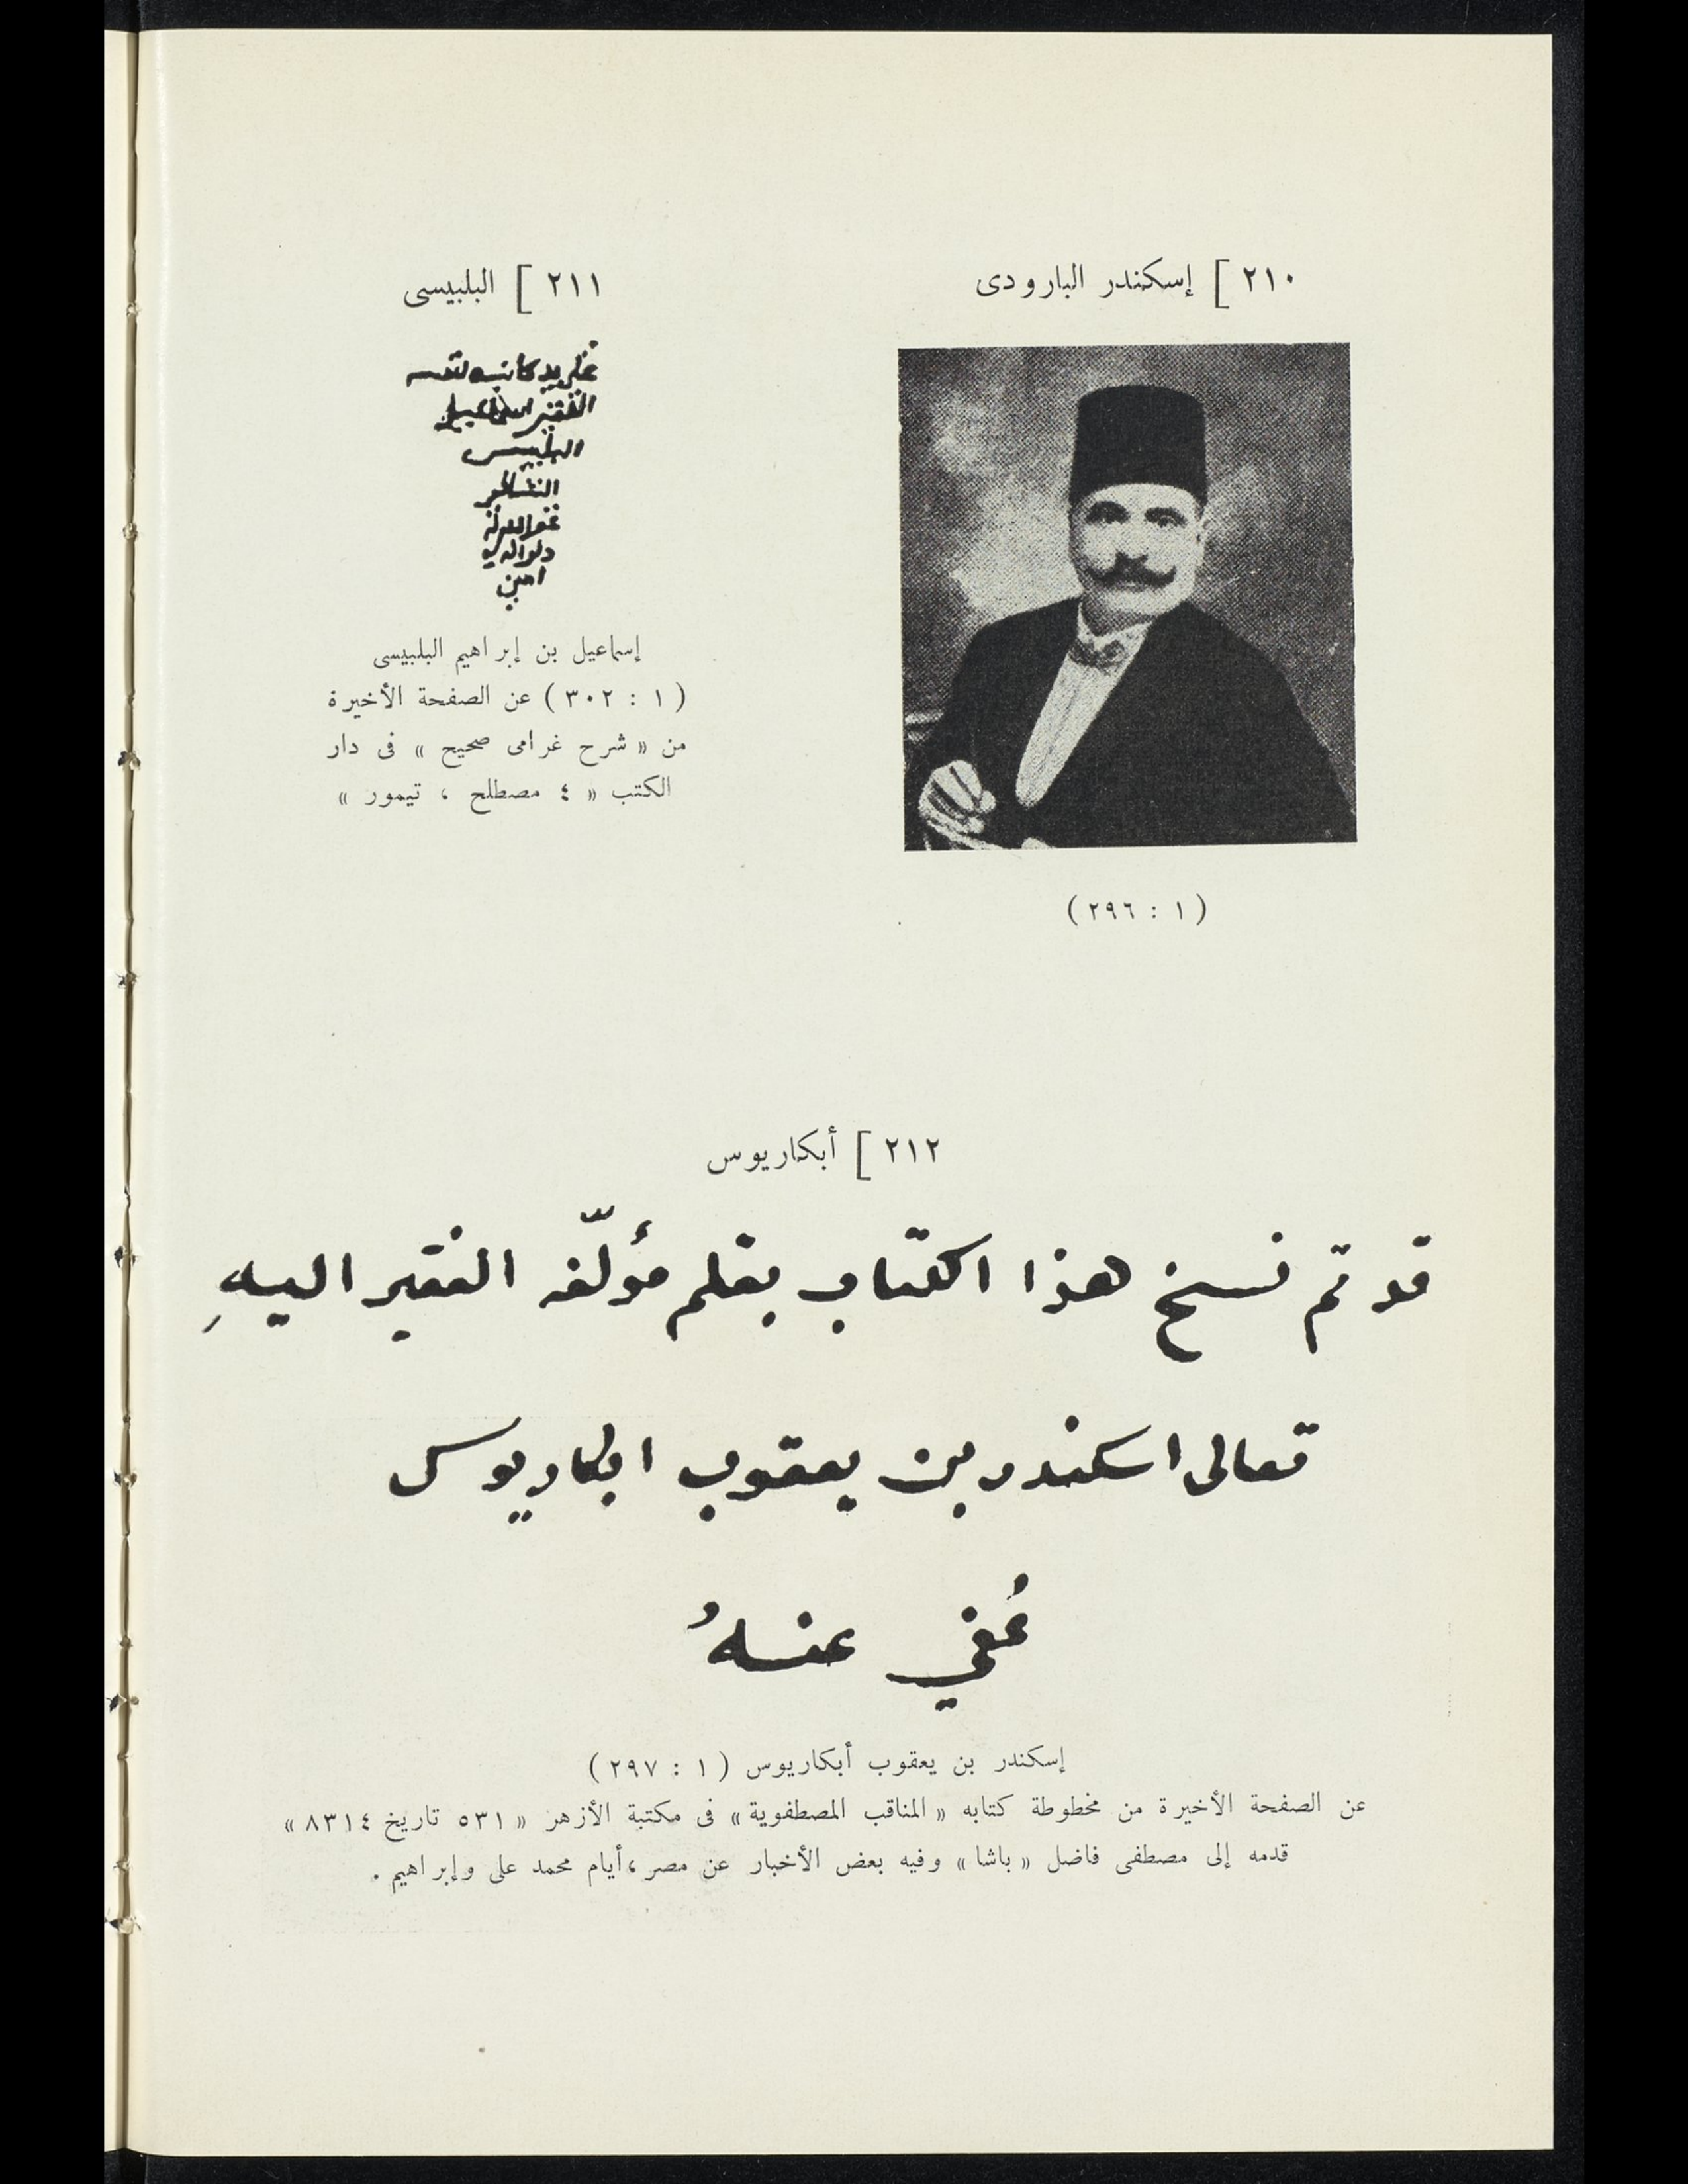 ٢١٠ ] إسكندر البارودى
( ١ : ٢٩٦ )
٢١١ ] البلبيسى
الفقير اسماعيل
البلبيسى
غفر الله له
ولوالديه
امين
إسماعيل بن إبراهيم البلبيسى
( ١ : ٣٠٢ ) عن الصفحة الأخيرة
من « شرح غرامى صحيح » فى دار
الكتب « ٤ مصطلح ، تيمور »
٢١٢ ] أبكاريوس
قد تم نسخ هذا الكتاب بقلم مؤلّفه الفقير اليهِ
تعالى اسكندر بن يعقوب ابكاريوس
عُفي عنهُ
إسكندر بن يعقوب أبكاريوس ( ١ : ٢٩٧ )
عن الصفحة الأخيرة من مخطوطة كتابه « المناقب المصطفوية » فى مكتبة الأزهر « ٥٣١ تاريخ ٨٣١٤ »
قدمه إلى مصطفى فاضل « باشا » وفيه بعض الأخبار عن مصر ، أيام محمد على وإبراهيم .